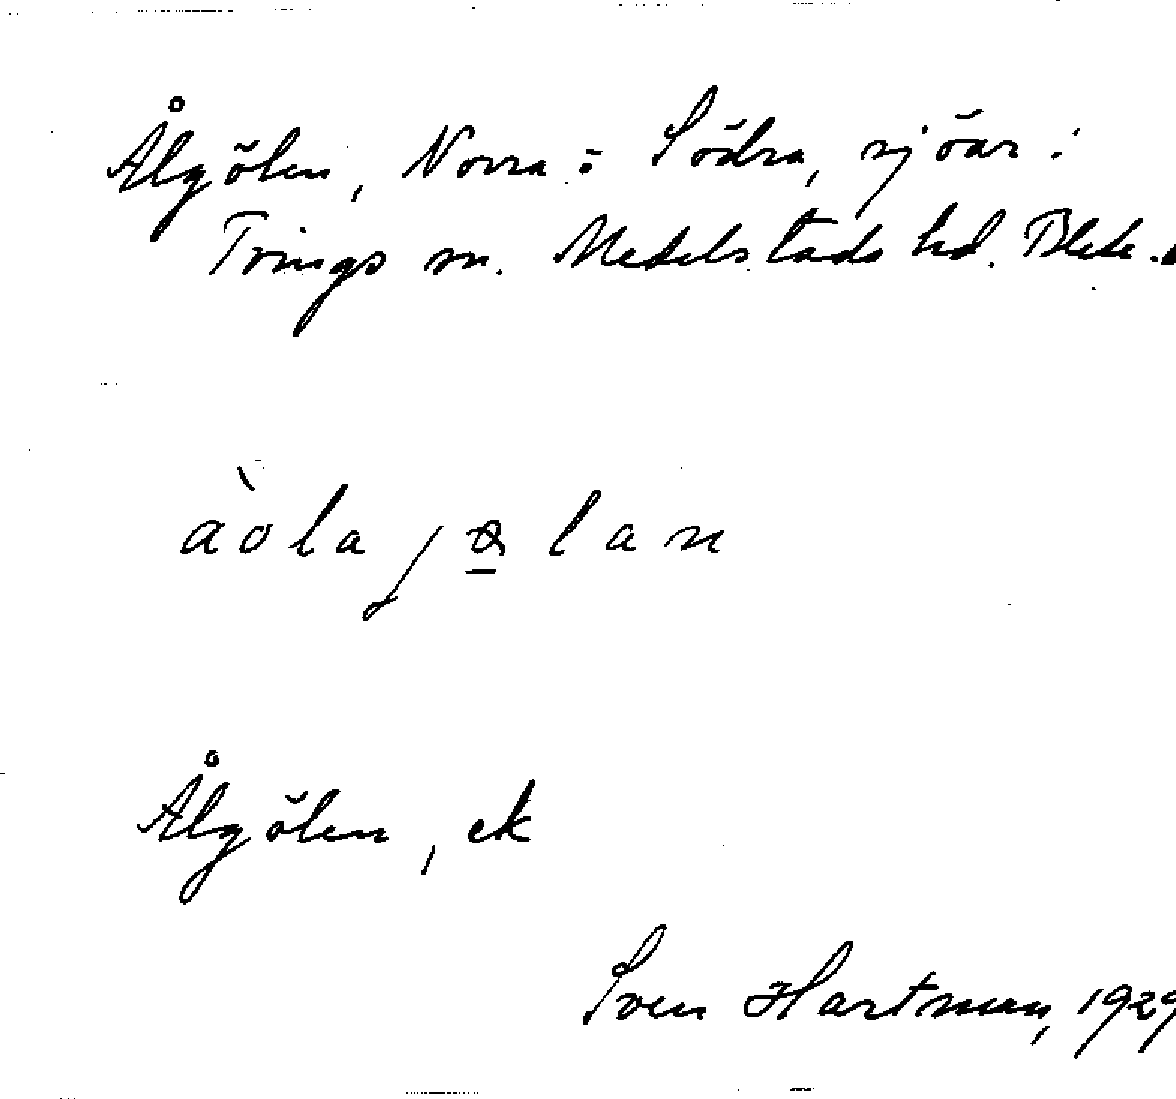 Ålgölen, Norra o. Södra, sjöar i
Tvings sn. Medelstads hd.Blek.
Ålgölen, ek
Sven Hartman, 1929